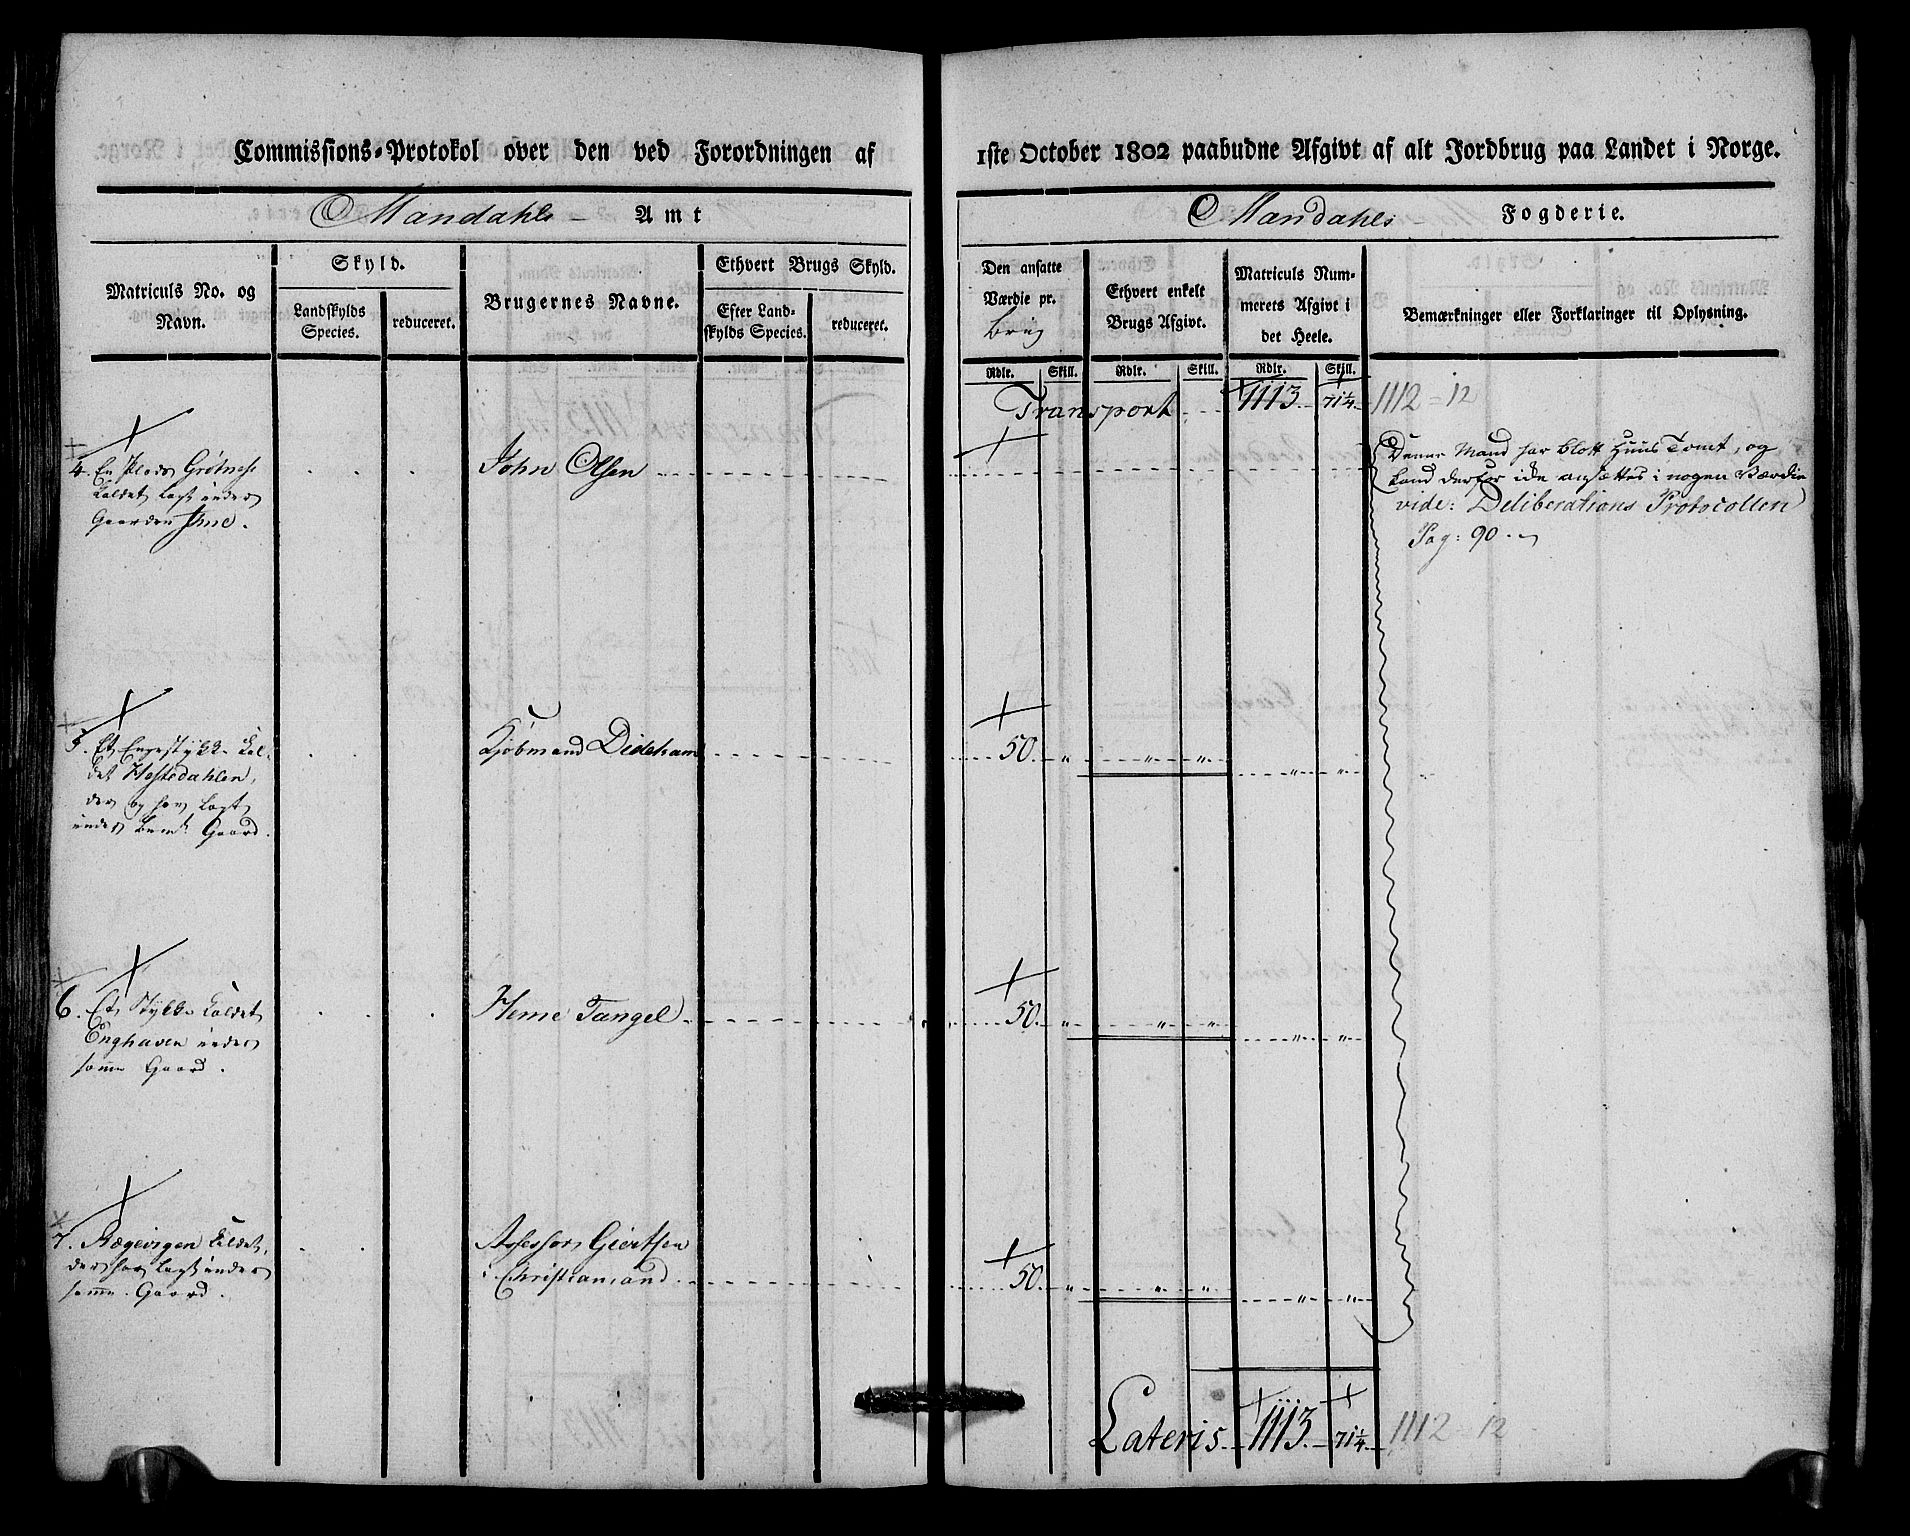 Commissions-Protokol over den ved Forordningen af 1ste October 1802 paabudne Afgivt af alt Jordbrug paa Landet i Norge.
Mandahls Amt
Mandahls Fogderie.
Matriculs No. og Navn.
Skyld.
Landskylds Species.
reduceret.
Brugernes Navne.
Ethvert Brugs Skyld.
Efter Landskylds Species.
reduceret.
Den ansatte Værdie pr. Brug
Ethvert enkelt Brugs Afgivt.
Matriculs Nummerets Afgivt i det Heele.
Bemærkninger eller Forklaringer til Oplysning.
Rdlr. Skill. Rdlr. Skill. Rdlr. Skill.
Transport 1113. 71¼ 1112 = 12
4. En Plads Grótnese
kaldet lagt under
Gaarden Ime.
John Olsen
Denne Mand har blott Huus Tomt, og
kand derfor ikke ansættes i nogen Værdie
vide: Deliberations Protocollen
Pag: 90.
5. Et Engestykke kal-
det Hestedahlen,
der og har lagt
under bemte Gaard.
Kjøbmand Dideham
50. " " " " "
6. Et Stykke kaldet
Enghaven under
samme Gaard.
Heme Tangel
50. " " " " "
7. Rægevigen kaldet,
der har lagt under
samme Gaard.
Assessor Giertsen
i Christiansand
50. " " " " "
Lateris 1113. 71¼ 1112 = 12